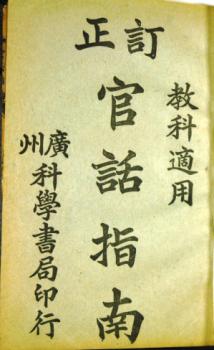 訂正
教科適用
官話指南
廣州科學書局印行